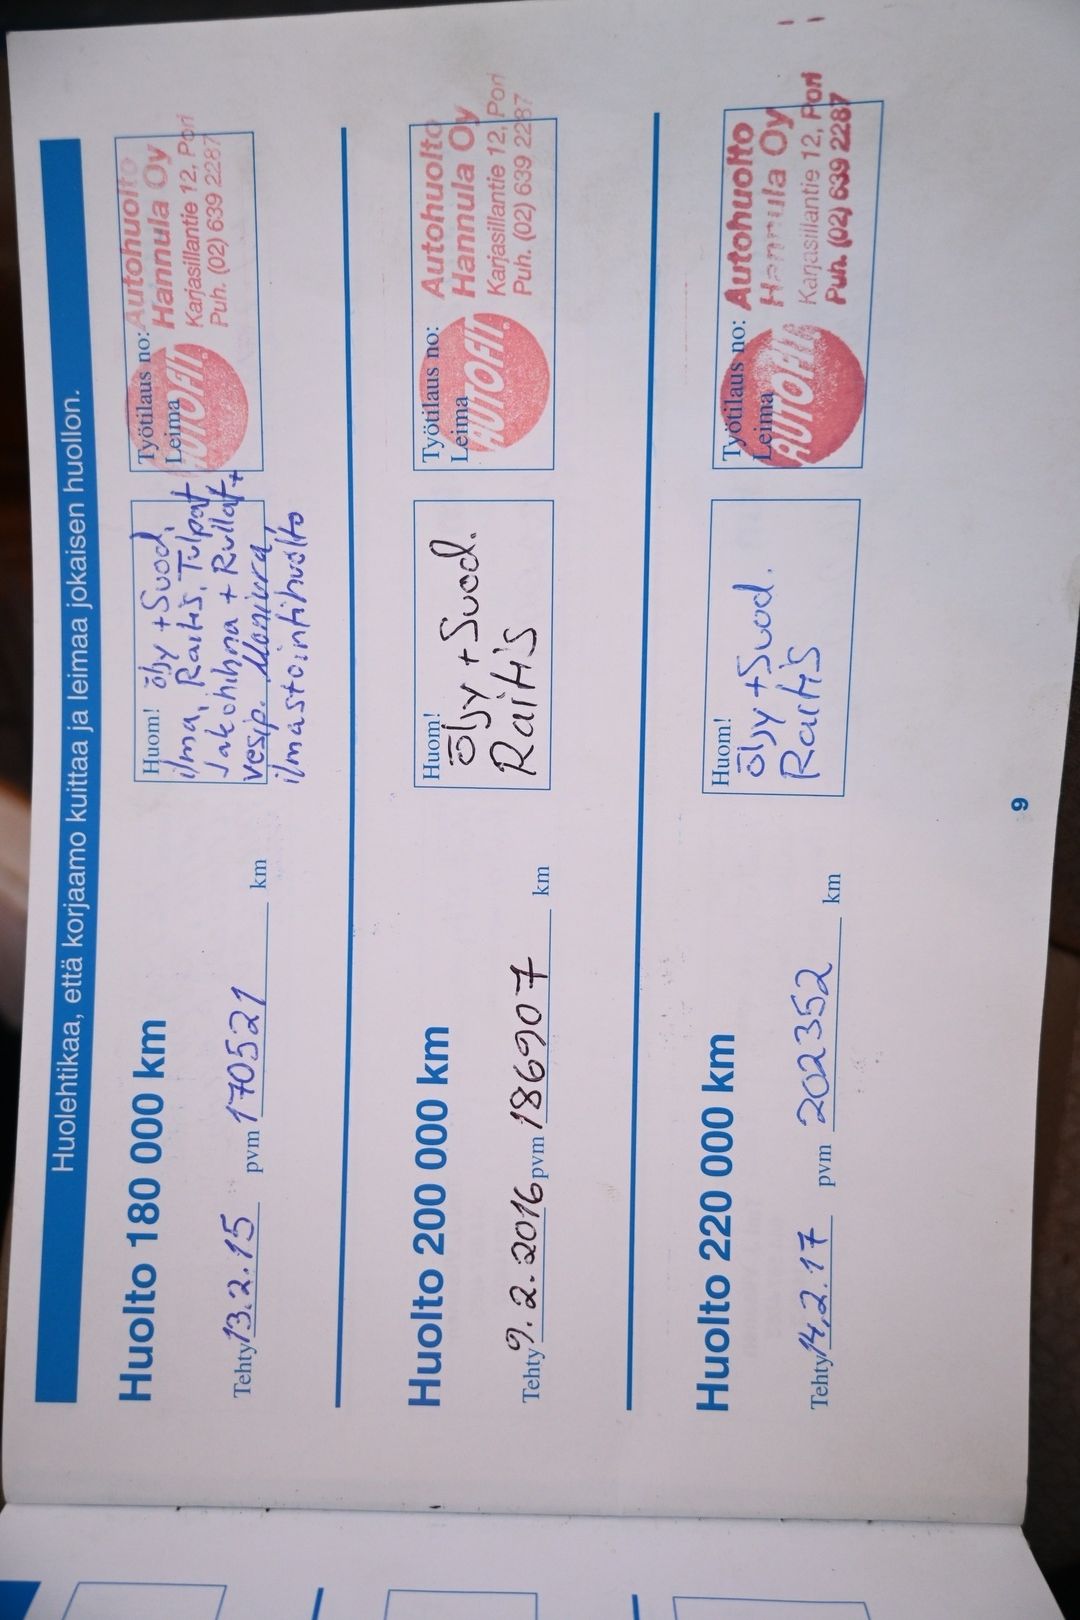 Huolehtikaa, että korjaamo kuittaa ja leimaa jokaisen huollon.
Huolto 180 000 km
Tehty 13.2.15 pvm 170521 km
Huom! öljy + Suod,
ilma, Raitis, Tulpat
Jakohihna + Rullat +
vesip.
ilmastointihuolto
Työtilaus no:
Leima
AUTOFIT
Autohuolto
Hannula Oy
Karjasillantie 12, Pori
Puh. (02) 639 2287
Huolto 200 000 km
Tehty 9.2.2016 pvm 186907 km
Huom!
öljy + Suod.
Raitis
Työtilaus no:
Leima
AUTOFIT
Autohuolto
Hannula Oy
Karjasillantie 12, Pori
Puh. (02) 639 2287
Huolto 220 000 km
Tehty 14.2.17 pvm 202352 km
Huom!
öljy + Suod.
Raitis
Työtilaus no:
Leima
AUTOFIT
Autohuolto
Hannula Oy
Karjasillantie 12, Pori
Puh. (02) 639 2287
9